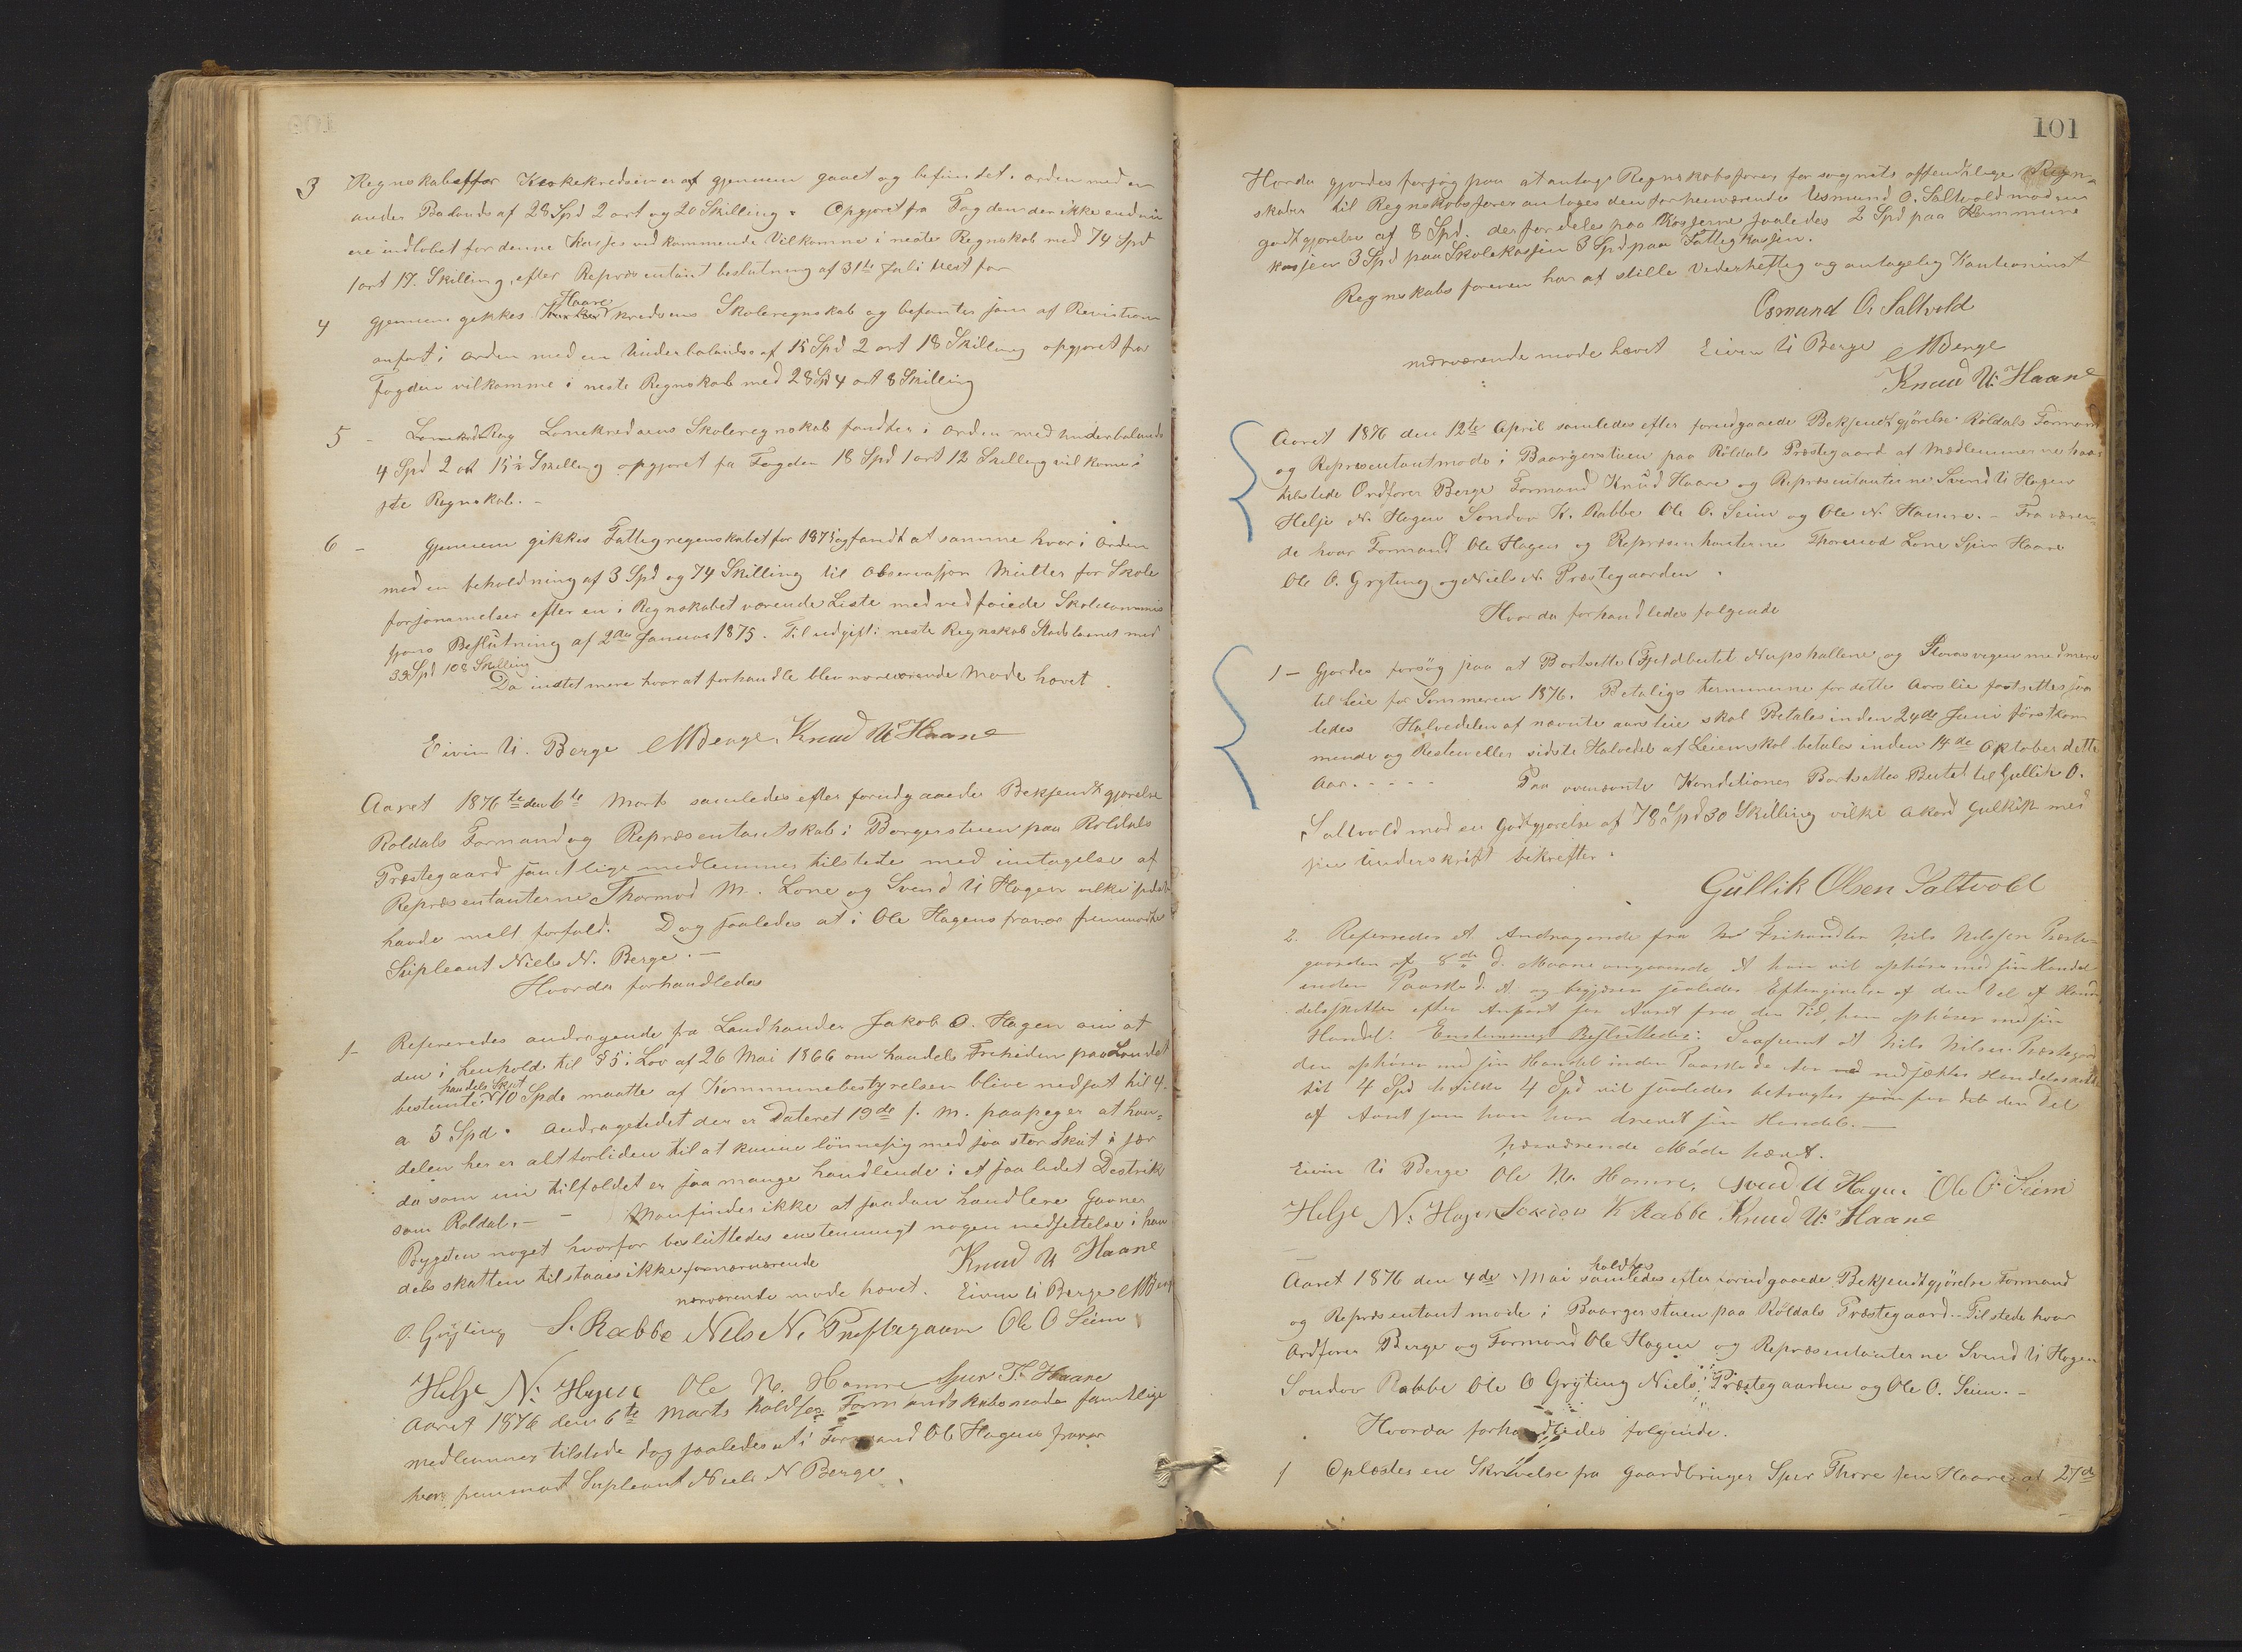 3 Regnskabet for Kerkekredsen er af gjennem gaaet og befundet. orden med en
under Baland af 28 Spd 2 ort og 20 Skilling. Opgjøret fra Fogden der ikke end nu
ere indlobet for denne Kasse ved kommende Vilkomme i neste Regnskab med 74 Spd
1 ort 17. Skilling, efter Repræsentant beslutning af 31te Juli nest for
4 gjennem gikkes Haare kredsens Skoleregnskab og befantes som af Revistion
anført i orden med en Underbalands af 15 Spd 2 ort 18 Skilling opgjoret fra
Fogden vilkomme i neste Regnskab med 28 Spd 4 ort 8 Skilling
5 - Lonekredsens Skoleregnskab fandtes i orden med underbalands
4 Spd 2 ort 15½ Skilling opgjoret fra Fogden 18 Spd 1 ort 12 Skilling vil kome i
Regnskab. -
6 - Gjennem gikkes Fattigregenskabet for 1875 og fandt at samme hvar i orden
med en beholdning af 3 Spd og 74 Skilling til Observasjon Mulkter for Skole
forsømmelser efter en i Regnskabet værende Liste med vedføiede Skolecommis
sjons Beslutning af 2den Januar 1875. Til udgift i neste Regnskab Stads laanet med
39 Spd 108 Skilling
Da intet mere hvar at forhandle blev nærværende Mode hævet.
Eivin U. Berge MBerge. Knud U Haare
Aaret 1876 te den 6te Marts samledes efter forudgaaede Bekjendtgjørelse
Roldals Formand og Repræsentantskab i Borgerstuen paa Roldals
Præstegaard samtlige medlemmer tilstede med undtagelse af
Repræsentanterne Thormod M. Lone og Svend U Hagen vilke
havde melt forfald. Dog saaledes at i Ole Hagens fravær fremmødte
Supleant Niels N. Berge. -
Hvorda forhandledes
1- Refereredes andragende fra Landhandler Jakob O. Hagen om at
den i henhold til § 5 i Lov af 26 Mai 1866 om handels Friheden paa Landet
handels Skat
bestemte 10 Spds maatte af Kommunebestyrelsen blive nedsat til 4
a 5 Spd. Andragendet der er Dateret 19de f. M. paapeger at han-
delen her er alt forliden til at kunne lønne sig med saa stor Skat i sær
da som nu tilfældet er saa mange handlende i et saa lidet Destrik
som Roldal. - Man finder ikke at saadan handlere gavner
Bygden noget hvorfor besluttedes enstemmigt nogen nedsettelse i han
dels skatten tilstaaes ikke for nærværende
nærværende mode hævet. Knud U Haare
Eivin U Berge MBerge
O. Gryting S. Rabbe Nels N. Præstegaarn Ole O Seim
Helje N. Hagen Ole N. Hamre Sjur T. Haare
Aaret 1876 den 6te Marts holdtes Formandskabsmode samtlige
medlemmer tilstede dog saaledes at i Formand Ole Hagens fravær
har fremmødt Supleant Niels N Berge.
101
Hvorda gjordes forsøg paa at antage Regnskabsfører for sognets offendtlige Regn-
skaber til Regnskabsfører antages den forhenværende Osmund O. Saltvold mod en
godtgjørelse af 8 Spd. der fordeles paa Kasserne saaledes 2 Spd paa Kommune
kassen 3 Spd paa Skolekassen 3 Spd paa Fattigkassen.
Regnskabs føreren har at stille Vederheftig og antagelig Kautionist
Osmund O. Saltvold
nærværende mode hævet Eivin U Berge MBerge
Knud U. Haare
Aaret 1876 den 12te April samledes efter forudgaaede Bekjendtgjørelse Röldals Formand
og Repræsentantmøde i Baargerstuen paa Röldals Præstegaard af Medlemmerne hvar
tilstede Ordfører Berge Formand Knud Haare og Repræsentanterne Svend U Hagen
Helje N. Hagen Sondov K. Rabbe Ole O. Seim og Ole N. Hamre. - Fra væren-
de hvar Formand Ole Hagen og Repræsentanterne Thormod Lone Sjur Haare
Ole O. Gryting og Niels N. Præstegaarden.
Hvorda forhandledes følgende
1- Gjordes forsøg paa at Bortsette Fjeldbeitet Nupshallene og Storasvegen med mere
til Leie for Sommeren 1876. Betalings terminerne for dette Aars leie fastsettes saa
ledes Halvedelen af nævnte aars leie skal Betales inden 24de Juni førstkom
mende og Resten eller sidste Halvedel af Leien skal betales inden 14de Oktober dette
Aar. - - - - Paa ovennævnte Konditioner Bortsattes Beitet til Gullik O.
Saltvold mod en Godtgjørelse af 78 Spd 30 Skilling vilke akord Gullik med
sin Underskrift bekrefter.
Gullik Olsen Saltvold
2. Refereredes et Andragende fra Frihandler Nils Nilssen Præste-
gaarden af 8de d. Maane angaaende at han vil ophøre med sin Handel
inden Paaske d. A. og begjærer saaledes Eftergivelse af den Del af Han-
delsskatten efter Anpart for Aaret fra den Tid, han ophører med sin
Handel. Enstemmigt Besluttedes: Saafremt at Nils Nilsen Præstegaar
den ophører med sin Handel inden Paaske da den nedsættes Handelsskatten
til 4 Spd hvilke 4 Spd vil saaledes betragtes som for den Del
af Aaret som han har drevet sin Handel. -
Nærværende Møde hævet.
Eivin U Berge Ole N. Hamre, Svend U Hagen. Ole O. Seim
Helje N. Hagen Sondov K Rabbe Knud U. Haare
Aaret 1876 den 4de Mai holdtes samledes efter forudgaaede Bekjendtgjørelse Formand
og Repræsentant mode i Baargerstuen paa Röldals Præstegaard.. Tilstede hvar
Ordfører Berge og Formand Ole Hagen og Repræsentanterne Svend U Hagen
Sondov Rabbe Ole O Grÿting Niels Præstegaarden og Ole O. Seim. -
Hvorda forhandledes følgende.
1 Oplæstes en Skrivelse fra Gaardbruger Sjur Thoresen Haare at 27de